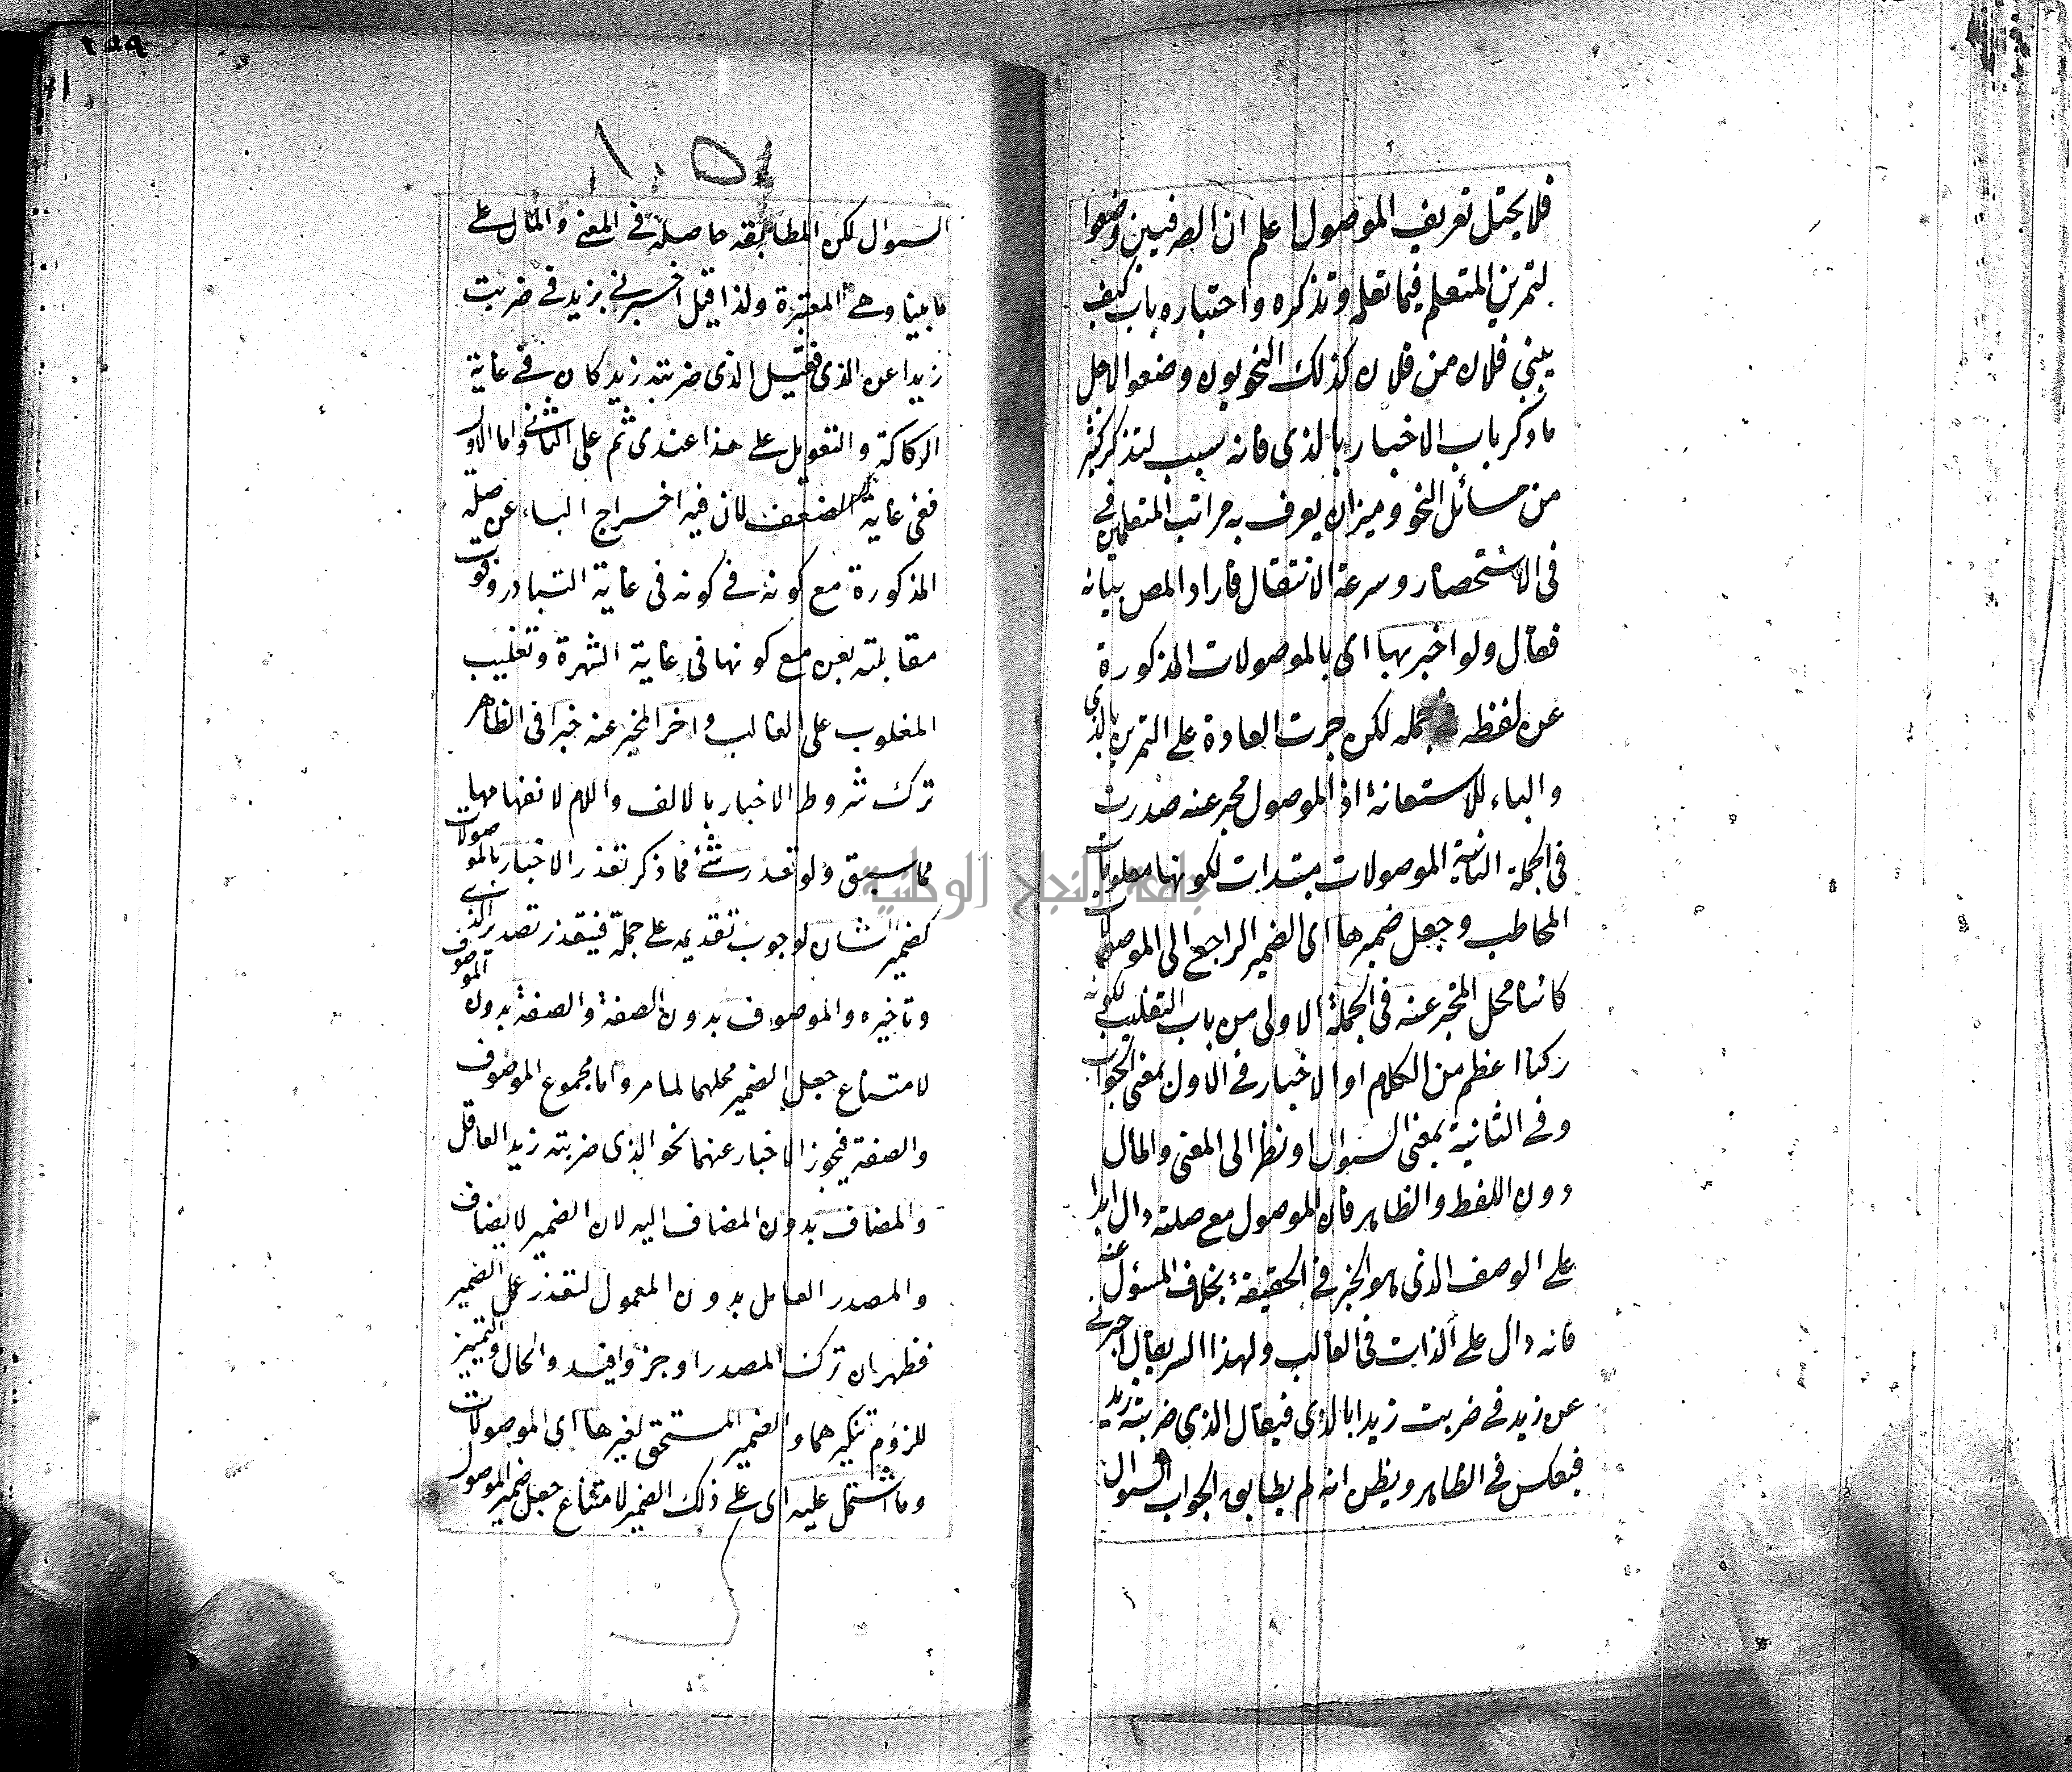 فلا يختل تعريف الموصول اعلم ان الصرفيين وضعوا
لتمرين المتعلم فيما تعلم وتذكره واختباره باب كيف
يبنى فلان من فلان كذلك النحويون وضعوا لاجل
ما ذكر باب الاخبار بالذى فانه سبب لتذكر كثير
من مسائل النحو وميزان يعرف به مراتب المتعلمين
فى الاستحضار وسرعة الانتقال فاراد المص بيانه
فقال ولو اخبر بها اى بالموصولات المذكورة
عن لفظه فى جمله لكن جرت العادة على التمرين بالذى
والباء للاستعانة اذ الموصول مخبر عنه صدرت
فى الجملة الثانية الموصولات مبتدات لكونها معلومات
المخاطب وجعل ضميرها اى الضمير الراجع الى الموصولات
كائنا محل المخبر عنه فى الجملة الاولى من باب التغليب لكونه
ركنا اعظم من الكلام او الاخبار فى الاول بمعنى الجواب
وفى الثانية بمعنى السؤال او نظرا الى المعنى والمال
دون اللفظ والظاهر فان الموصول مع صلته دال ابدا
على الوصف الذى هو الخبر فى الحقيقة بخلاف المسؤل عنه
فانه دال على الذات فى الغالب ولهذا السر يقال اخبرنى
عن زيد فى ضربت زيدا بالذى فيقال الذى ضربته زيد
فيعكس فى الظاهر ويظن انه لم يطابق الجواب السؤال
٢٥٩
السؤال لكن المطابقه حاصلة فى المعنى والمال على
ما بينا وهى المعتبرة ولذا قيل اخبرنى بزيد فى ضربت
زيدا عن الذى فقيل الذى ضربته زيد كان فى غاية
الركاكة والتعويل على هذا عندى ثم على الثانى واما الاول
ففى غاية الضعف لان فيه اخراج الباء عن صلة
المذكورة مع كونه فى كونه فى غاية التبادر وفوت
مقابلته بعن مع كونها فى غاية الشهرة وتغليب
المغلوب على الغالب واخر المخبر عنه خبرا فى الظاهر
ترك شروط الاخبار بالالف واللام لانفهامها
مما سبق ولو تعذر شئ مما ذكر تعذر الاخبار بالموصولات
كضمير الشان لوجوب تقديمه على جملة فيتعذر تصدير الذى
وتاخيره والموصوف بدون الصفة والصفة بدون الموصوف
لامتناع جعل الضمير محلهما لما مر واما مجموع الموصوف
والصفة فيجوز الاخبار عنهما نحو الذى ضربته زيد العاقل
والمضاف بدون المضاف اليه لان الضمير لا يضاف
والمصدر العامل بدون المعمول لتعذر عمل الضمير
فظهر ان ترك المصدر اوجز وافيد والحال والتمييز
للزوم تنكيرهما والضمير المستحق لغيرها اى الموصولات
وما اشتمل عليه اى على ذلك الضمير لامتناع جعل ضمير الموصول
جامعة النجاح الوطنية